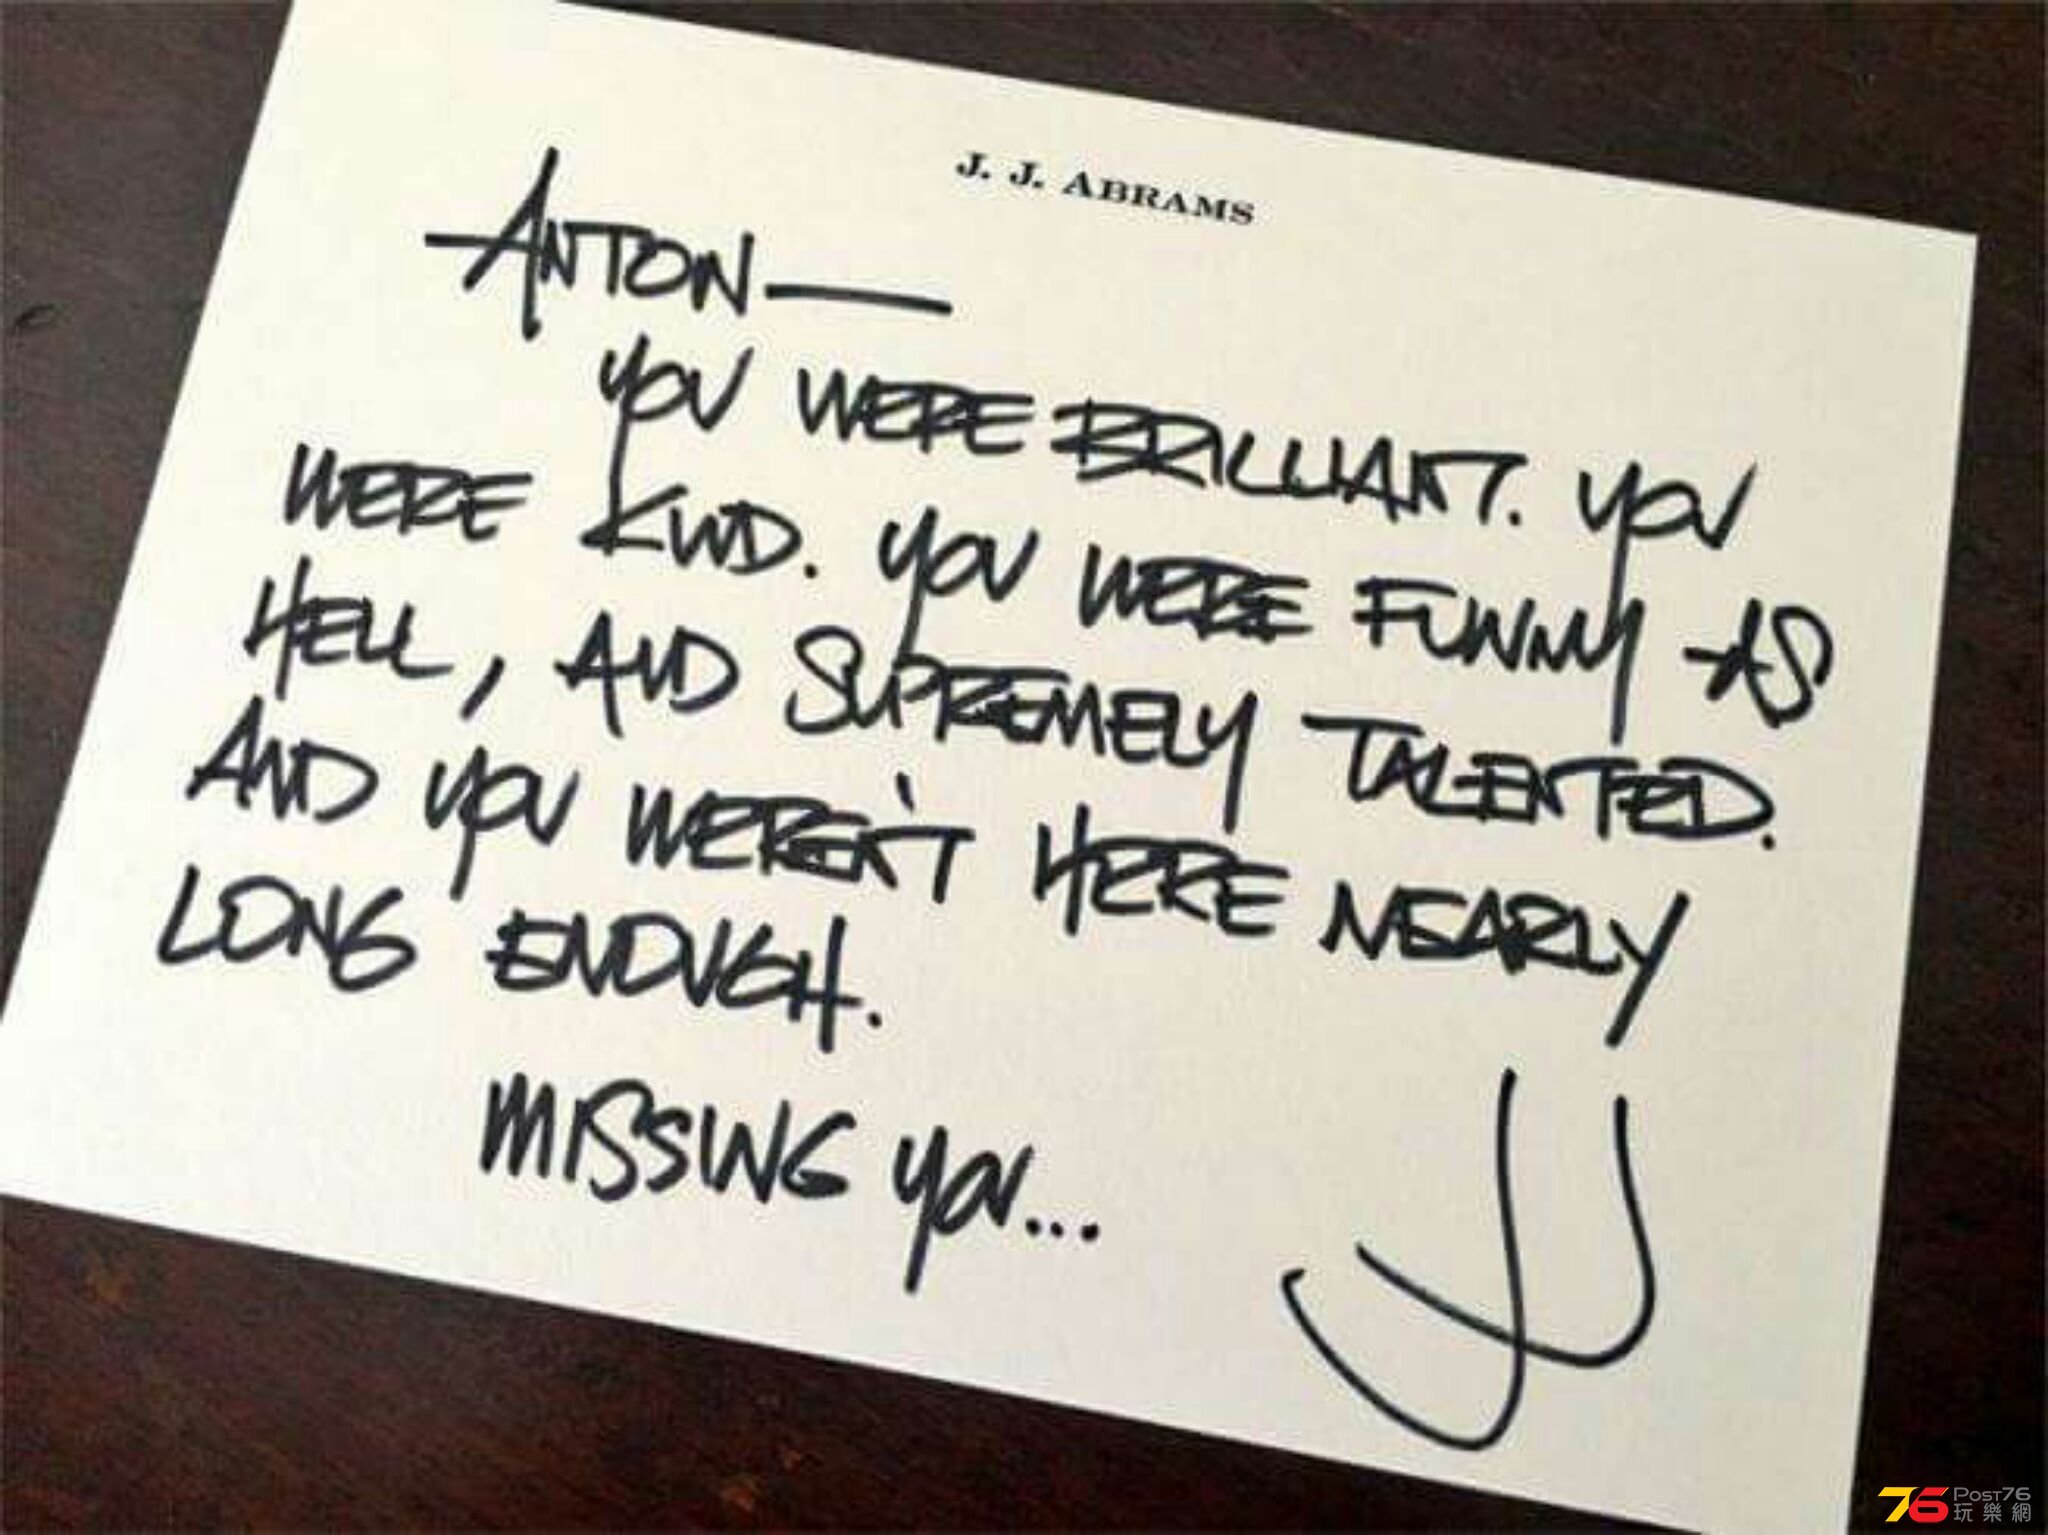 J. J. ABRAMS
ANTON—
YOU WERE BRILLIANT. YOU
WERE KIND. YOU WERE FUNNY AS
HELL, AND SUPREMELY TALENTED.
AND YOU WEREN'T HERE NEARLY
LONG ENOUGH.
MISSING YOU...
JJ
76 POST76
玩樂網